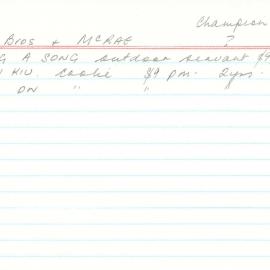 Champion
Bros & McRAE ?
G A SONG outdoor servant $9
HIU. Cookie $9 pm. 2yrs.
ON " "